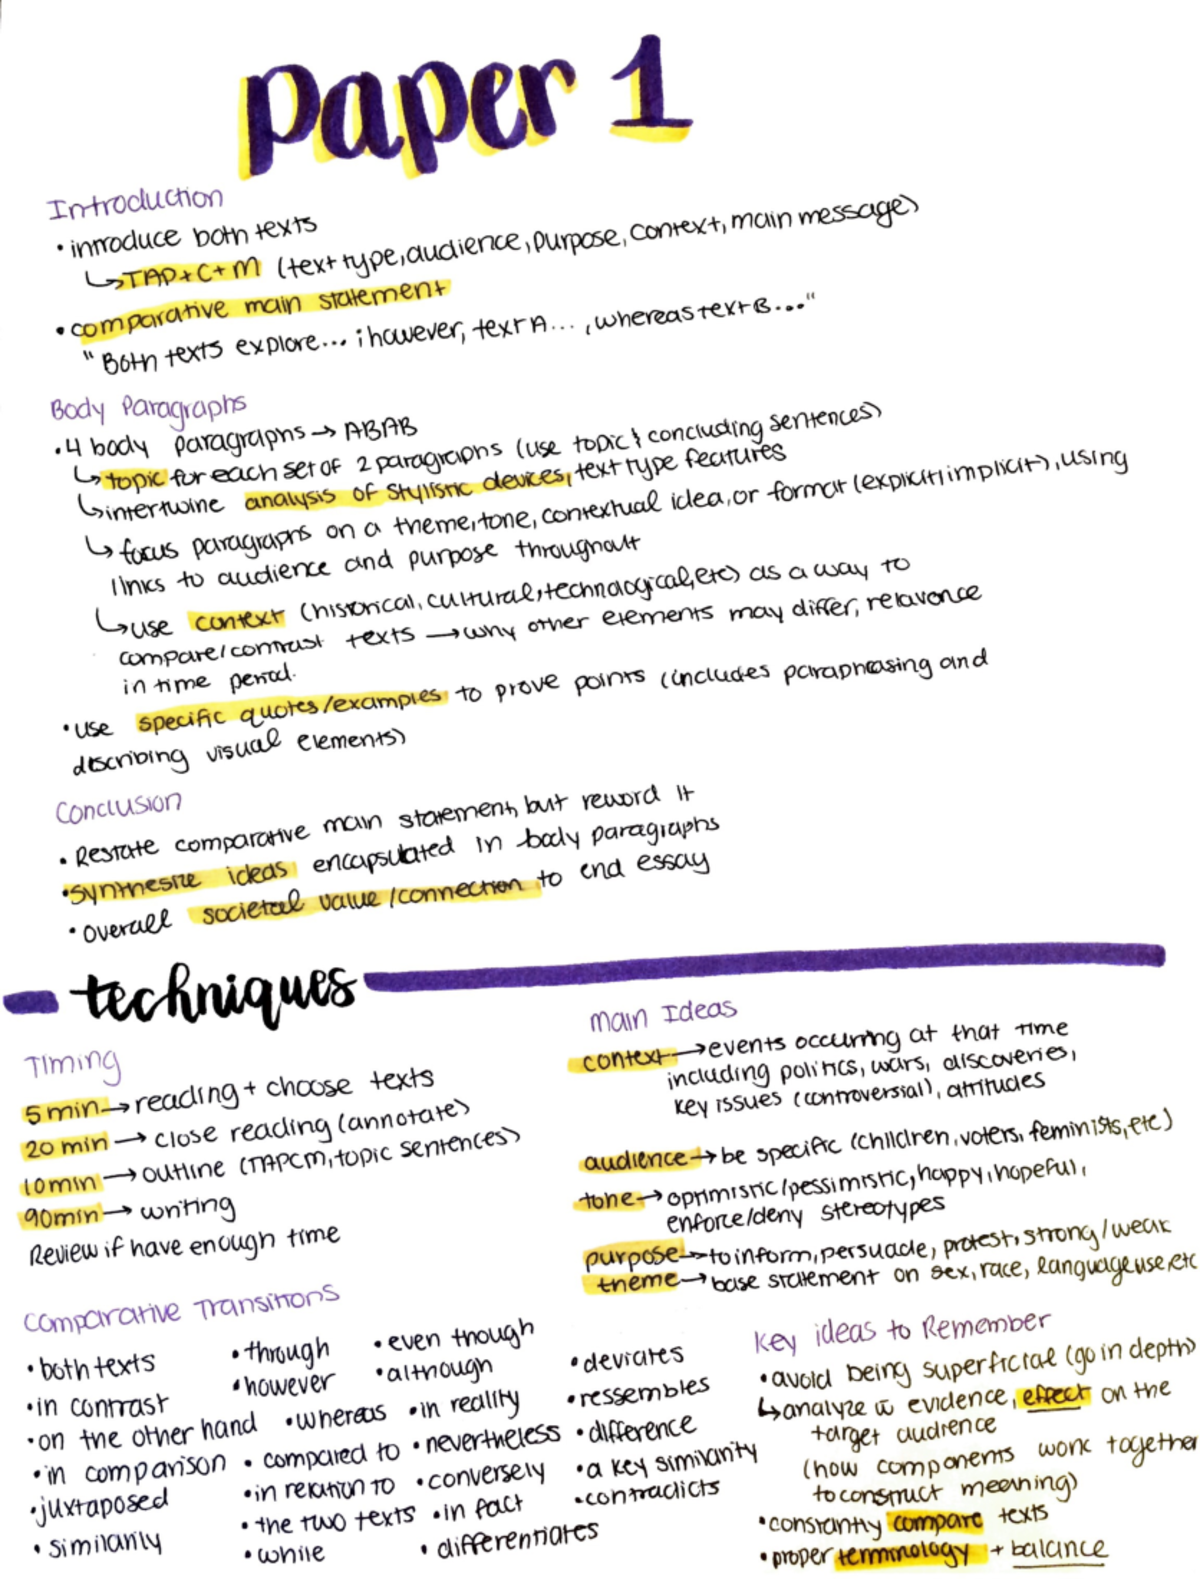 paper 1
Introduction
• introduce both texts
↳ TAP+C+M (text type, audience, purpose, context, main message)
• comparative main statement
"Both texts explore... ; however, text A... , whereas text B...."
Body Paragraphs
• 4 body paragraphs → ABAB
↳ topic for each set of 2 paragraphs (use topic & concluding sentences)
↳ intertwine analysis of stylistic devices, text type features
↳ focus paragraphs on a theme, tone, contextual idea, or format (explicit/implicit), using
links to audience and purpose throughout
↳ use context (historical, cultural, technological, etc) as a way to
compare/contrast texts → why other elements may differ, relavence
in time period.
• use specific quotes/examples to prove points (includes paraphrasing and
describing visual elements)
Conclusion
• Restate comparative main statement, but reword it
• synthesize ideas encapsulated in body paragraphs
• overall societal value/connection to end essay
techniques
Timing
5 min → reading + choose texts
20 min → close reading (annotate)
10 min → outline (TAPCM, topic sentences)
90 min → writing
Review if have enough time
Comparative Transitions
• both texts • through • even though
• in contrast • however • although
• on the other hand • whereas • in reality
• in comparison • compared to • nevertheless
• juxtaposed • in relation to • conversely
• similarily • the two texts • in fact
• while • differentiates
• deviates
• ressembles
• difference
• a key similarity
• contradicts
Main Ideas
context → events occurring at that time
including politics, wars, discoveries,
key issues (controversial), attitudes
audience → be specific (children, voters, feminists, etc)
tone → optimistic/pessimistic, happy, hopeful,
enforce/deny stereotypes
purpose → to inform, persuade, protest, strong/weak
theme → base statement on sex, race, language use, etc
Key ideas to Remember
• avoid being superficial (go in depth)
↳ analyze w evidence, effect on the
target audience
(how components work together
to construct meaning)
• constantly compare texts
• proper terminology + balance